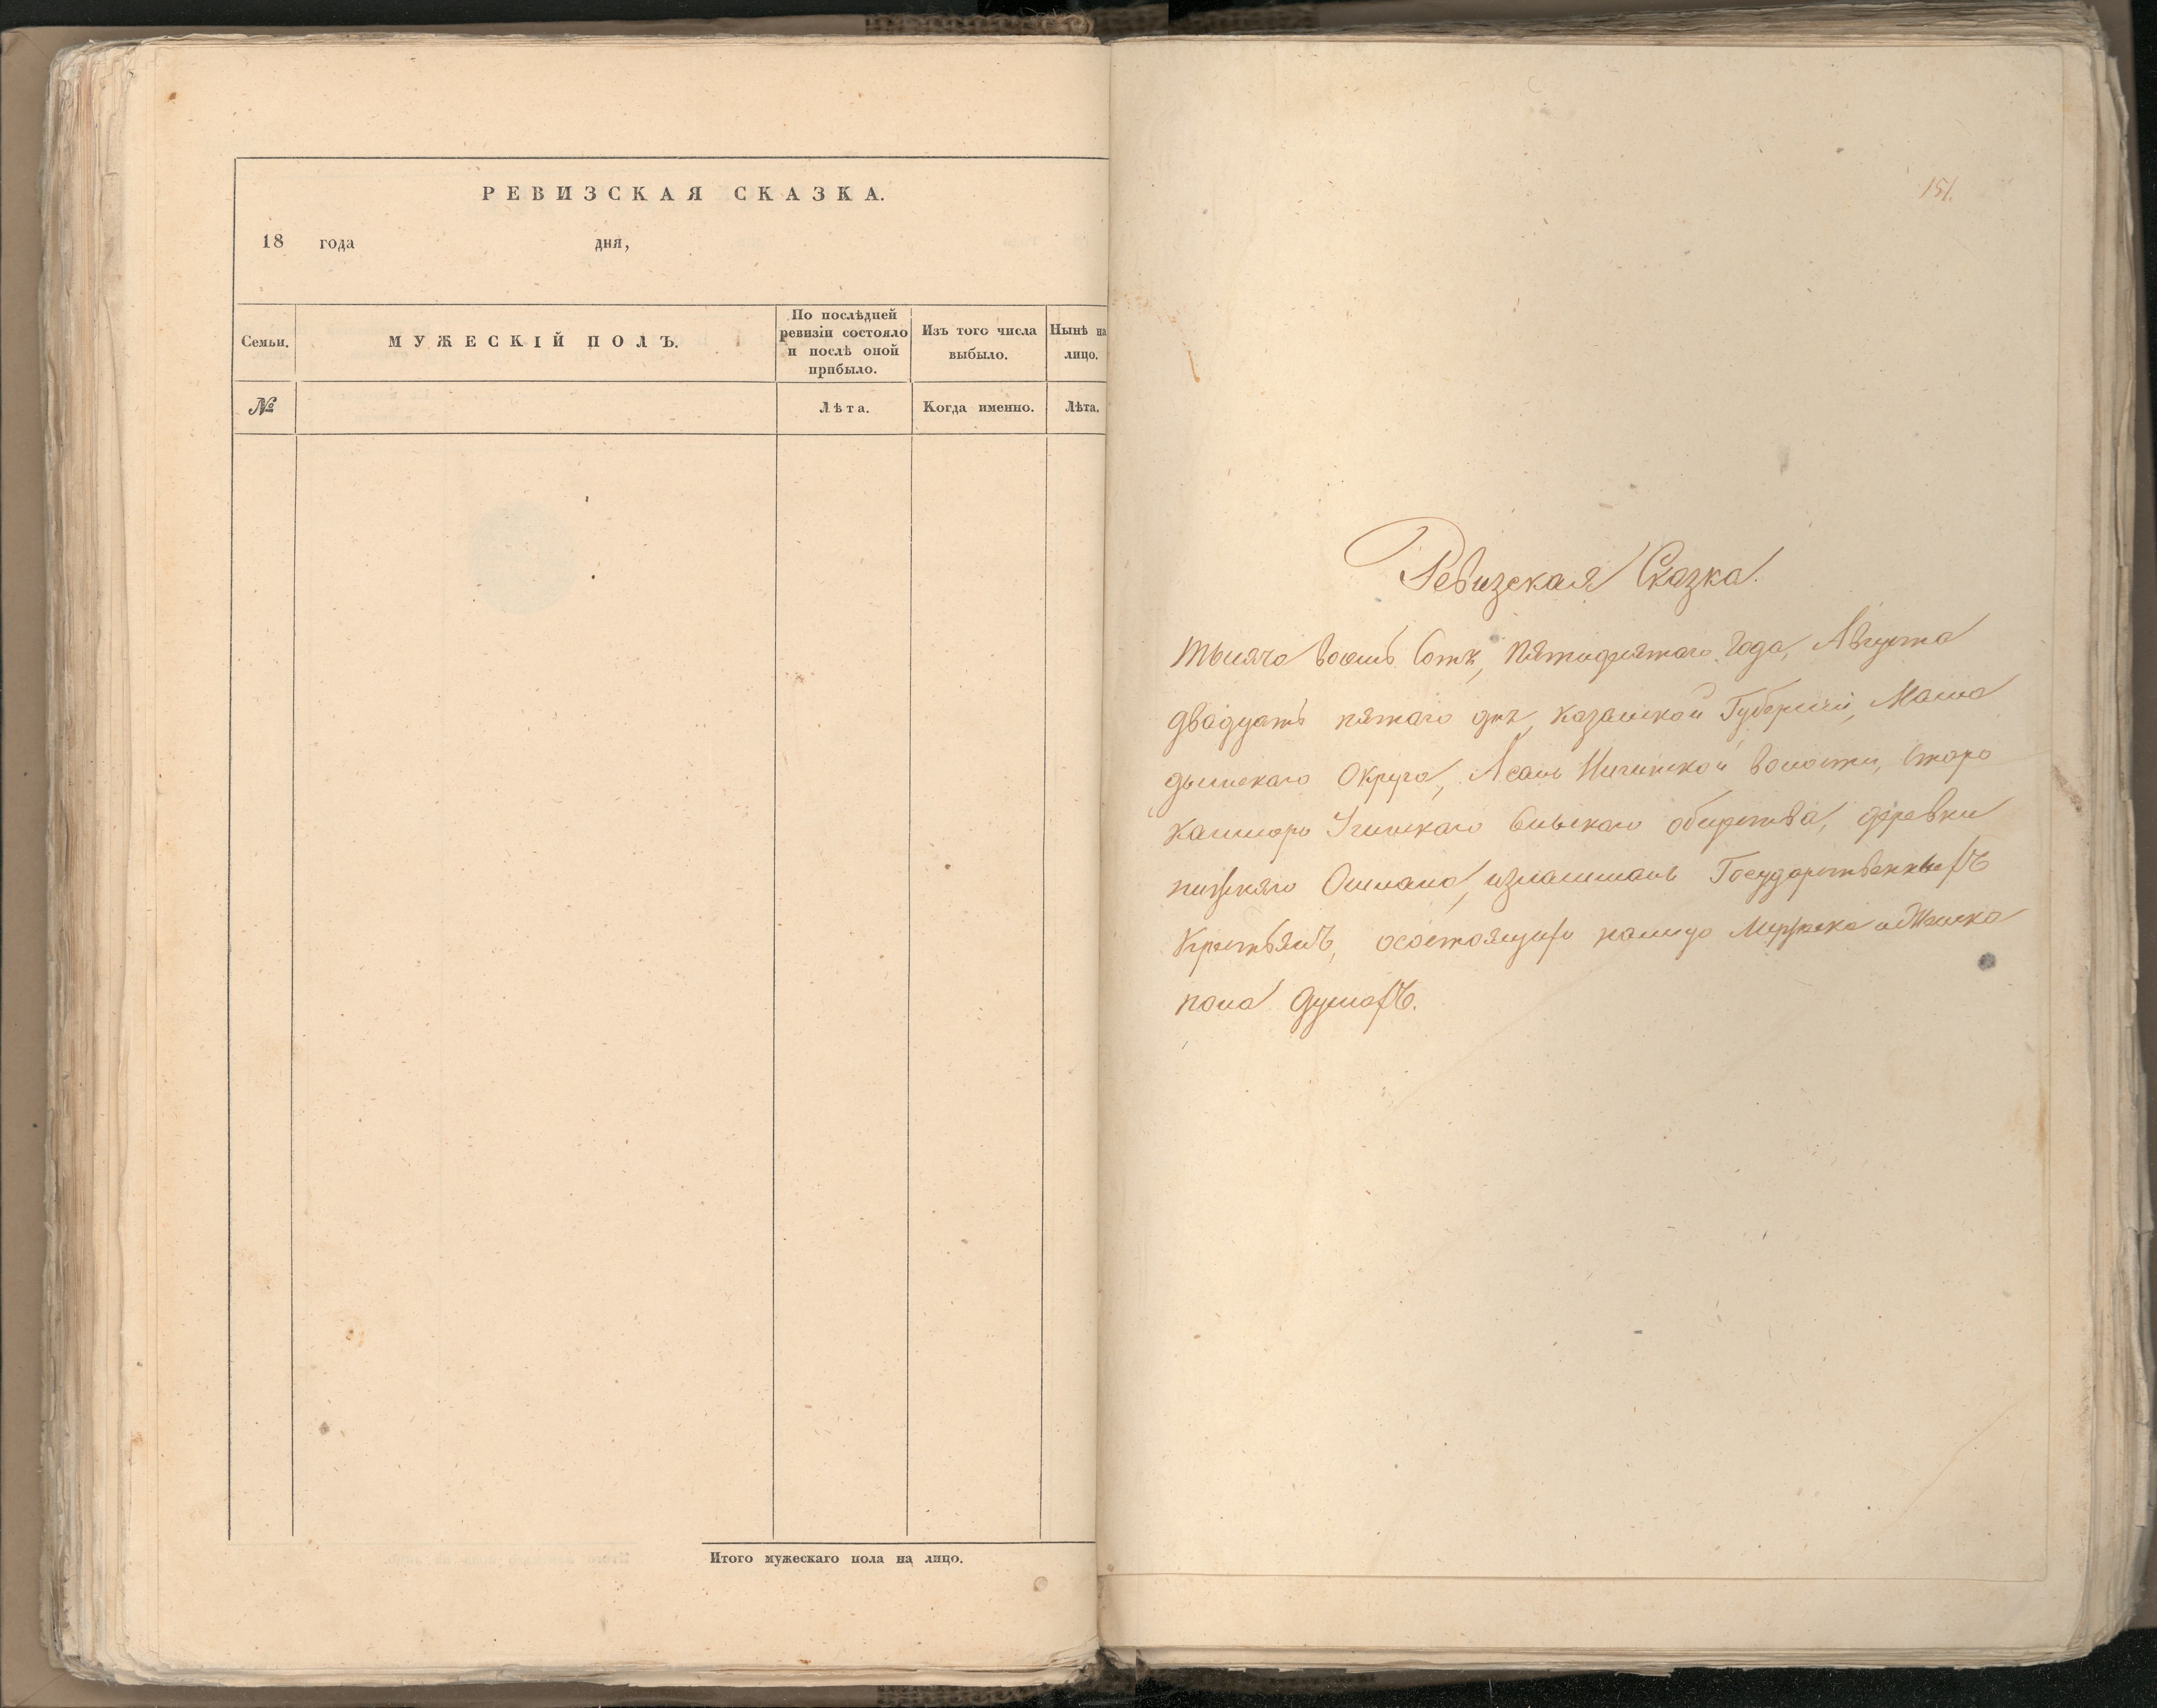 РЕВИЗСКАЯ СКАЗКА.
18 года дня,
Семьи.
МУЖЕСКІЙ ПОЛЪ.
По послѣдней
ревизіи состояло
и послѣ оной
прибыло.
Изъ того числа
выбыло.
Нынѣ на
лицо.
№
Лѣта.
Когда именно.
Лѣта.
Итого мужескаго пола на лицо.
151.
Ревизская Сказка.
Тысяча восемь Сотъ, пятидесятаго Года, Августа
двадцать пятаго дня, Казанской Губерніи, Мама
дышскаго Округа, Волости, Старо
Сельскаго общества, деревни
Ошмана, Государственныхъ
Крестьянъ, осостоящихъ налицо Мужеска и Женска
пола душахъ.